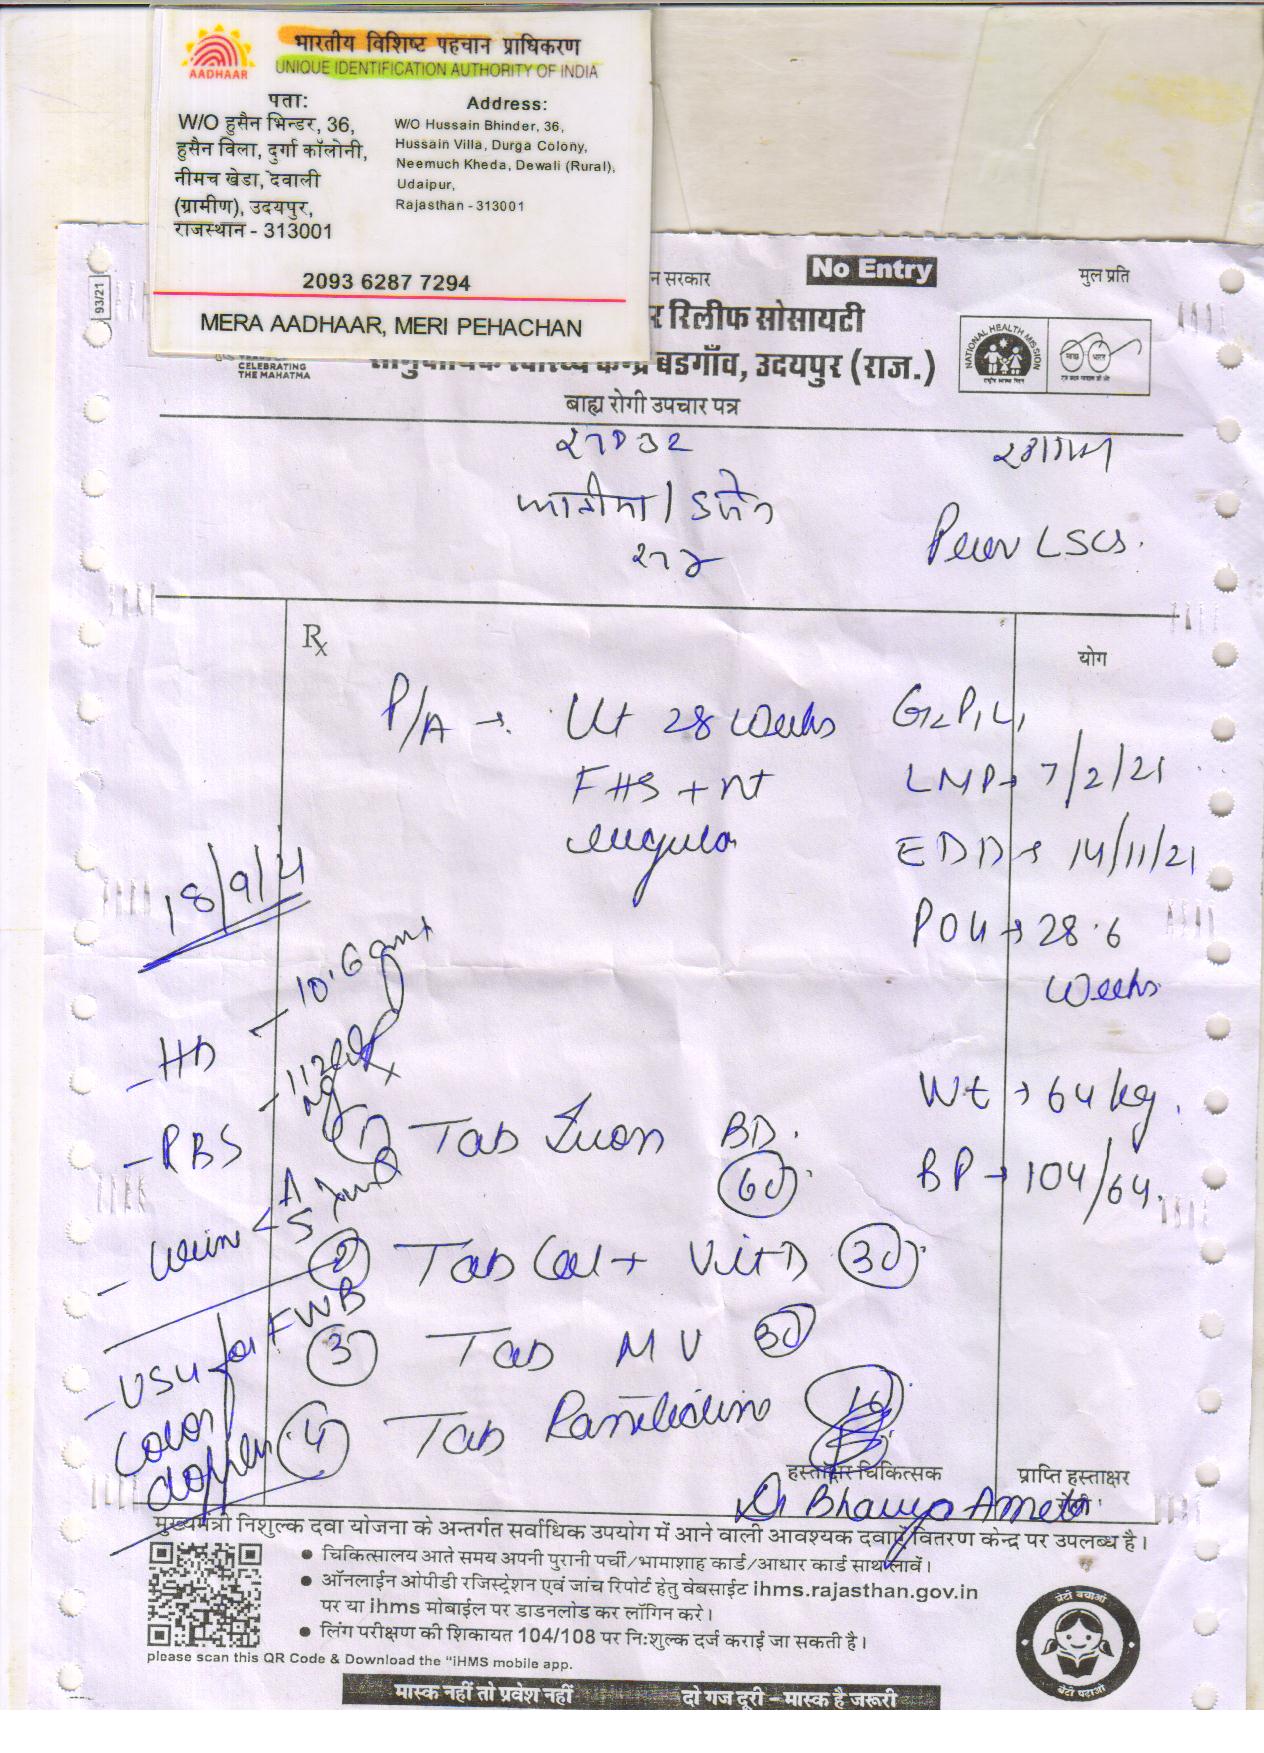 भारतीय विशिष्ट पहचान प्राधिकरण
UNIQUE IDENTIFICATION AUTHORITY OF INDIA
AADHAAR
पता:
W/O हुसैन भिन्डर, 36,
हुसैन विला, दुर्गा कॉलोनी,
नीमच खेडा, देवाली
(ग्रामीण), उदयपुर,
राजस्थान - 313001
Address:
W/O Hussain Bhinder, 36,
Hussain Villa, Durga Colony,
Neemuch Kheda, Dewali (Rural),
Udaipur,
Rajasthan - 313001
2093 6287 7294
MERA AADHAAR, MERI PEHACHAN
93/21
न सरकार
No Entry
मुल प्रति
र रिलीफ सोसायटी
सामुदायिक स्वास्थ्य केन्द्र बडगाँव, उदयपुर (राज.)
CELEBRATING
THE MAHATMA
NATIONAL HEALTH MISSION
बाह्य रोगी उपचार पत्र
LSCS.
Rx
योग
P/A → Ut 28 Weeks
FHS + nt
G2P1L1
LMP → 7/2/21
EDD → 14/11/21
POG → 28.6
Weeks
Wt → 64 kg.
BP → 104/64.
18/9/21
- HB - 10.6 gm
- RBS - 112
- Urine
- USG for FWB
Color
doppler
1) Tab Iron BD.
60
2 Tab Cal + Vit D 30
3 Tab MV 30
4 Tab Ranitidine 10
हस्ताक्षर चिकित्सक
प्राप्ति हस्ताक्षर
Dr Bhavya Ameta
मुख्यमंत्री निशुल्क दवा योजना के अन्तर्गत सर्वाधिक उपयोग में आने वाली आवश्यक दवाएं वितरण केन्द्र पर उपलब्ध है।
● चिकित्सालय आते समय अपनी पुरानी पर्ची/भामाशाह कार्ड/आधार कार्ड साथ लावें।
● ऑनलाईन ओपीडी रजिस्ट्रेशन एवं जांच रिपोर्ट हेतु वेबसाईट ihms.rajasthan.gov.in
पर या ihms मोबाईल पर डाडनलोड कर लॉगिन करे।
● लिंग परीक्षण की शिकायत 104/108 पर निःशुल्क दर्ज कराई जा सकती है।
please scan this QR Code & Download the "iHMS mobile app.
बेटी बचाओ
बेटी पढ़ाओ
मास्क नहीं तो प्रवेश नहीं दो गज दूरी - मास्क है जरूरी